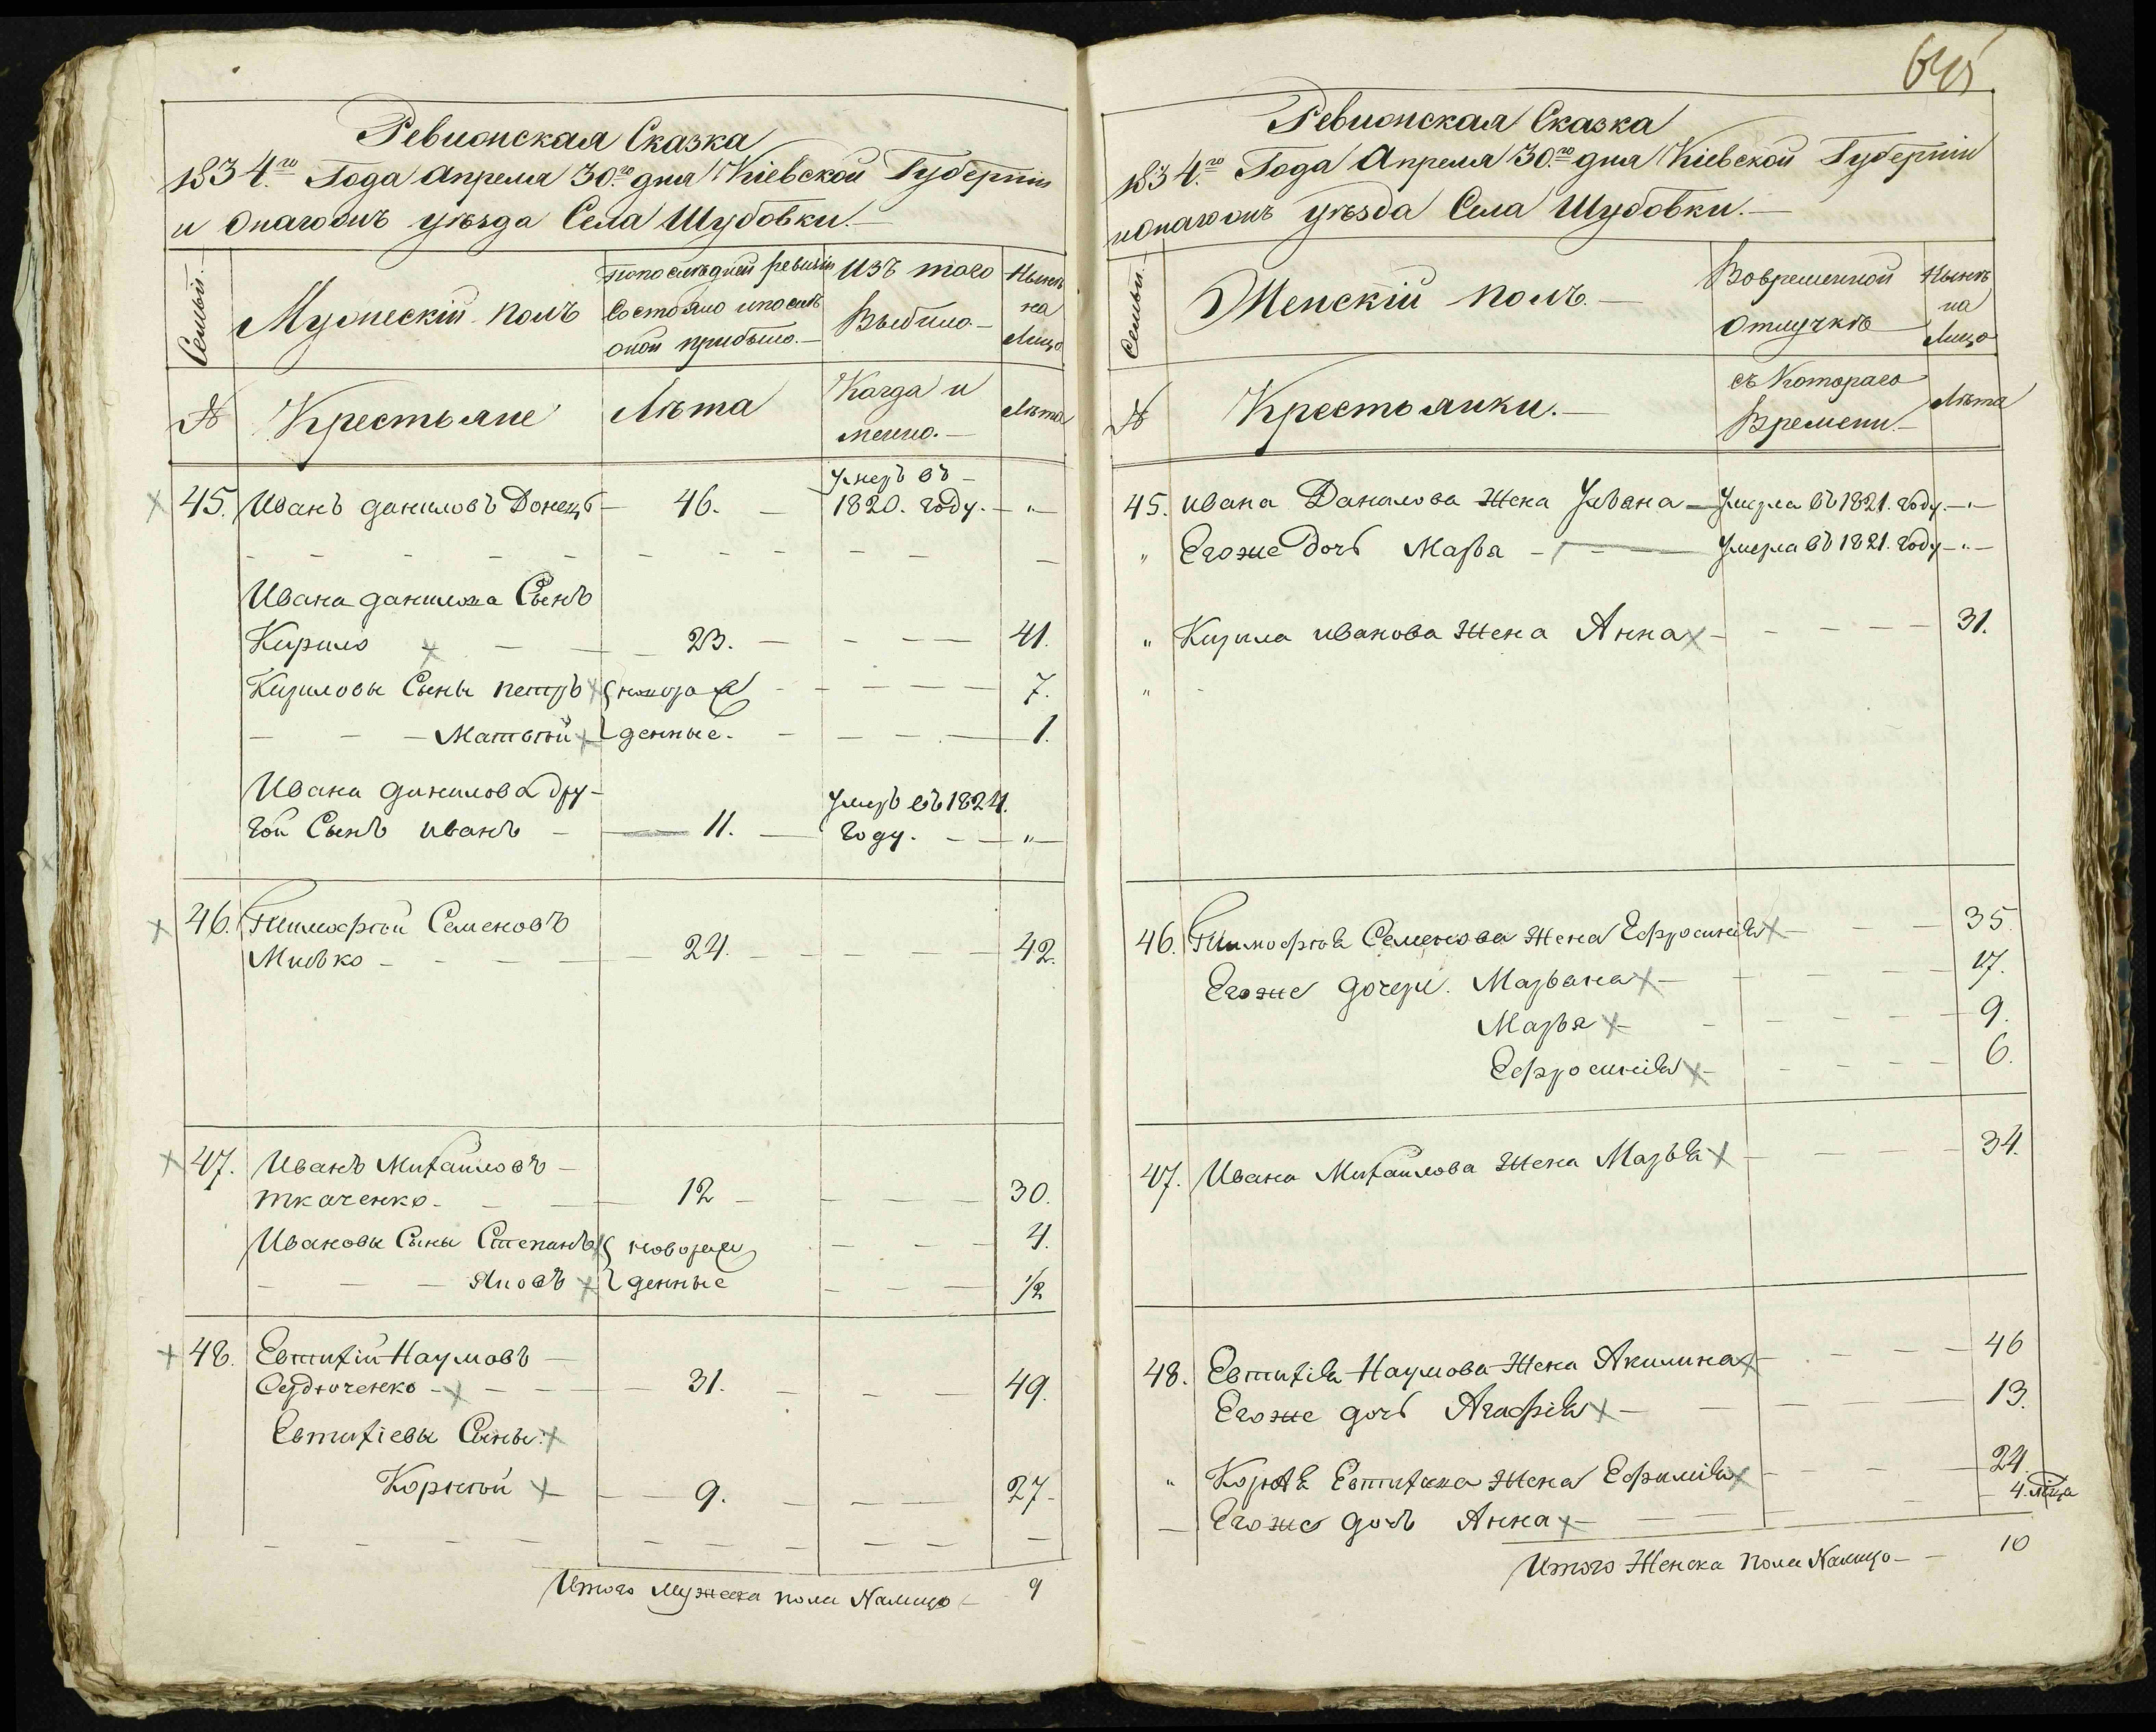 Ревизская Сказка
1834.го Года Апреля 30.го дня Кіевской Губерніи
уѣзда Села Шубовки.
Семьи.
Мужескій полъ
По последней ревизіи
Состояло и после
оной прибыло.
Изъ того
Выбыло
Нынѣ
на
Лицо
№
Крестьяне
Лѣта
Когда и
менно.
Лѣта
45. Иванъ даниловъ Донецъ 46. Умеръ въ 1820. году. "
Ивана данилова Сынъ
Кирило 23. 41.
Кириловы Сыны петръ новорож 7.
Матвѣй денные. 1.
Ивана данилова дру-
гой Сынъ иванъ 11. Умеръ въ 1824. году. "
46. Тимофѣй Семеновъ
Милько 24. 42.
47. Иванъ Михайловъ
ткаченко 12 30.
Ивановы Сыны Степанъ новорож 4.
Яковъ денные 1/2
48. Евтихій Наумовъ
Сердюченко 31. 49.
Евтихіевы Сыны:
Корнѣй 9. 27
Итого Мужеска пола Налицо 9
645
Ревизская Сказка
1834.го Года Апреля 30.го дня Кіевской Губерніи
уѣзда Села Шубовки.
Семьи.
Женскій полъ
Вовременной
Отлучкѣ
Нынѣ
на
Лицо
№
Крестьянки.
съ Котораго
Времени
Лѣта
45. ивана Данилова Жена Ульяна Умерла въ 1821. году. "
" Егоже дочь Марья Умерла въ 1821. году "
" Кирила иванова Жена Анна 31.
"
46. Тимофѣя Семенова Жена Ефросинія 35
Егоже дочери. Марьяна 17.
Марья 9.
Ефросинія 6.
47. Ивана Михайлова Жена Марья 34.
48. Евтихія Наумова Жена Акилина 46
Егоже дочь Агафія 13.
" Корнѣя Евтихіева Жена Ефимія 24
Егоже дочь Анна 4. мѣца
Итого Женска пола Налицо 10